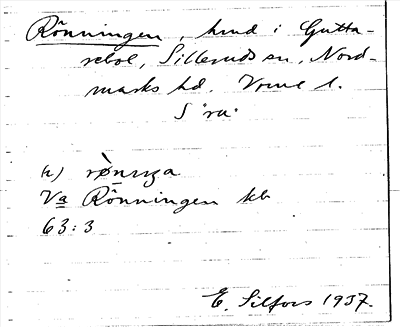 Rönningen, hmd i Gutta-
rebol, Sillerud sn, Nord-
marks hd. Vrml l.
S "ra"
u) rø̀nıŋa
Va Rönningen kb
63:3
E. Silfors 1937.